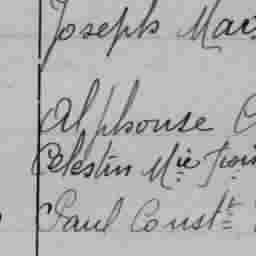 Joseph
Alphonse
Celestin Mie
Paul Constt